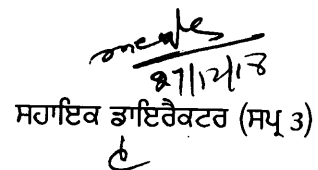 27/12/18
ਸਹਾਇਕ ਡਾਇਰੈਕਟਰ (ਸਪ੍ਰ 3)